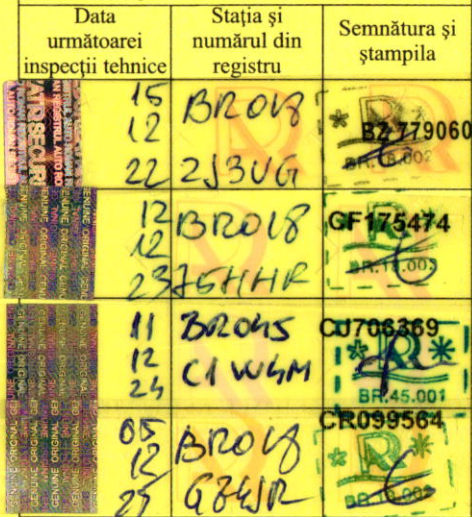 Data
următoarei
inspecții tehnice
Stația și
numărul din
registru
Semnătura și
ștampila
15
12
22
BR018
2J3UG
BZ 779060
BR.18.002
12
12
23
BR018
CF175474
11
12
24
BR045
C1W4M
CJ706369
BR.45.001
05
12
BR018
CR099564
GENUINE ORIGINAL